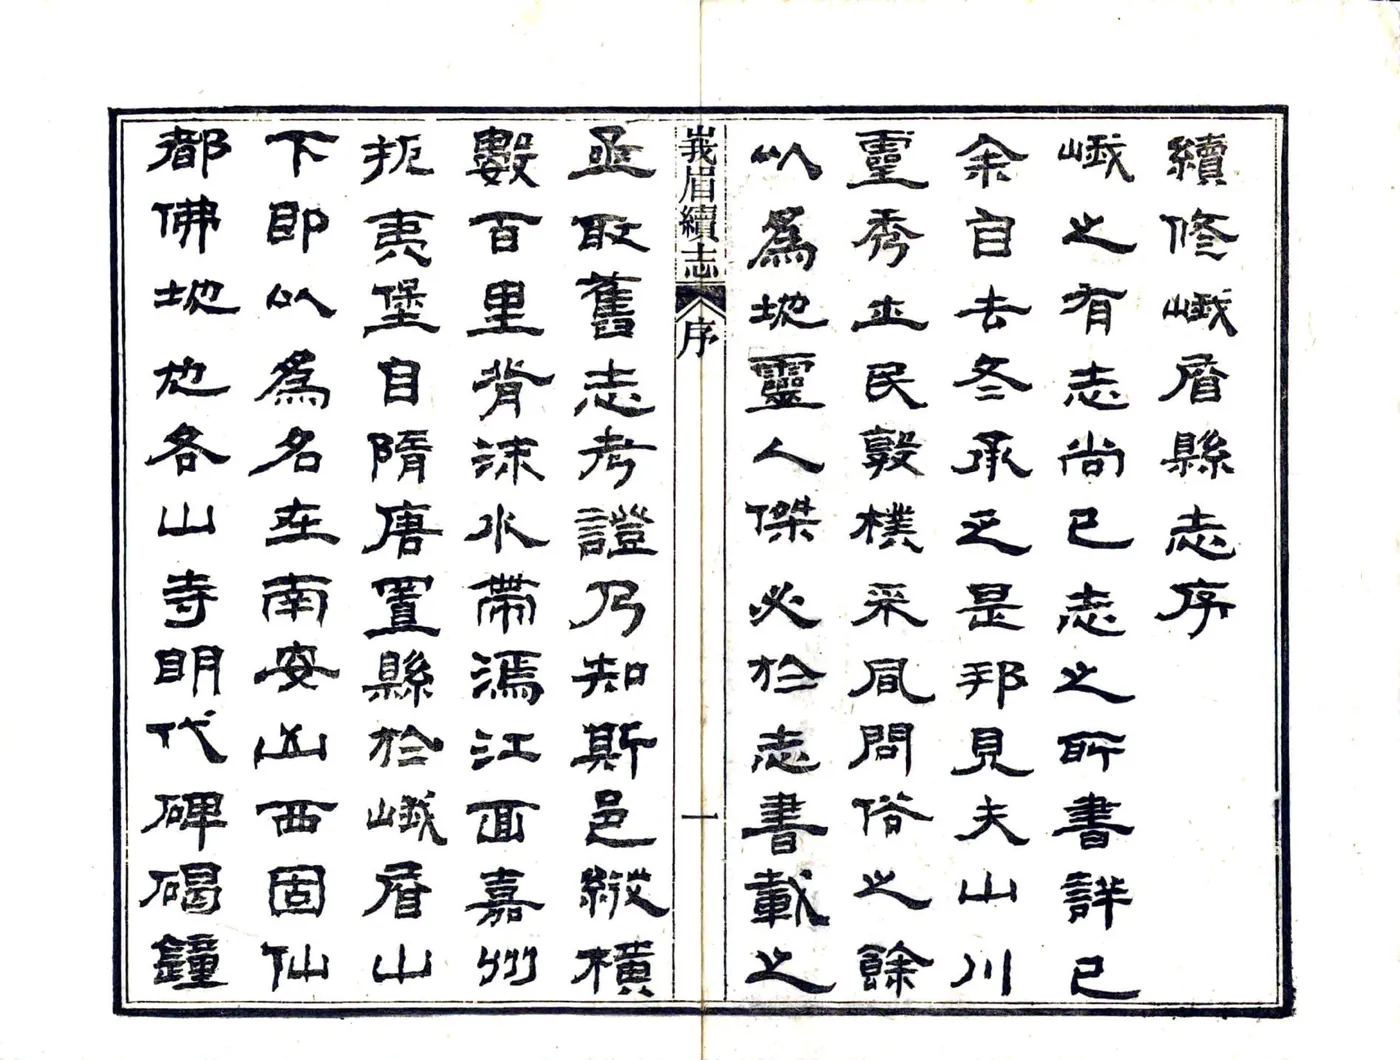 續修峨眉縣志序
峨之有志尚已志之所書詳已
余自去冬承乏是邦見夫山川
靈秀土民敦樸采風問俗之餘
以為地靈人傑必於志書載之
峩眉續志 序 一
亟取舊志考證乃知斯邑縱橫
數百里背沫水帶溤江面嘉州
扼夷堡自隋唐置縣於峨眉山
下即以為名在南安山西固仙
都佛地也各山寺明代碑碣鐘